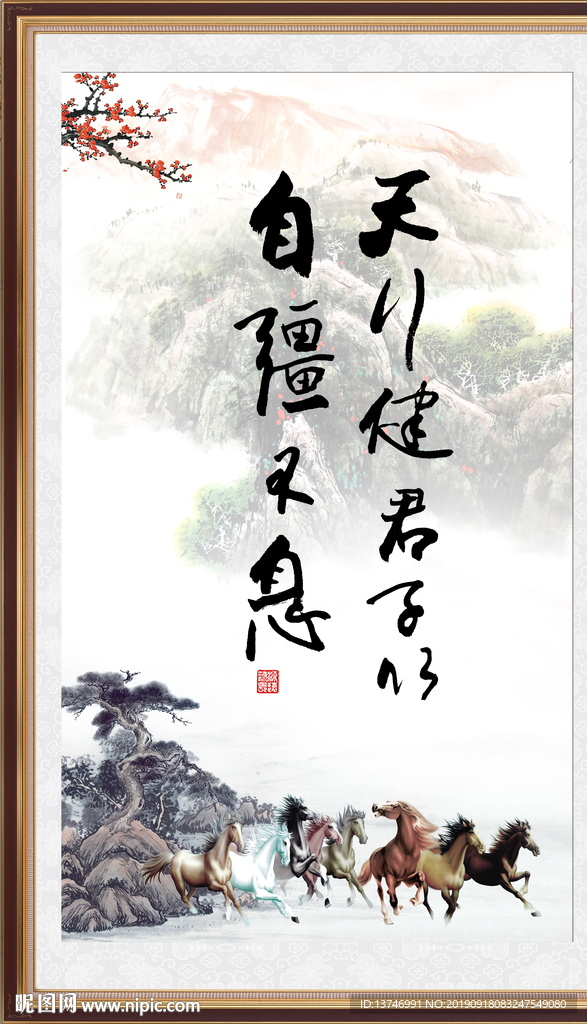 天行健君子以
自彊不息
昵图网 www.nipic.com
ID:13746991 NO:20190918083247549080